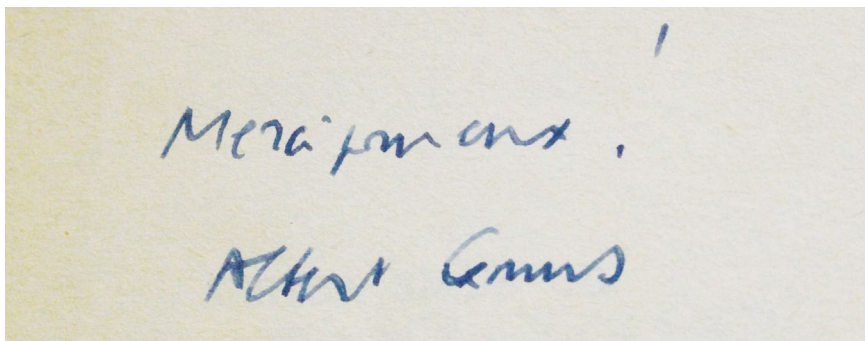 Merci pour eux !
Albert Camus